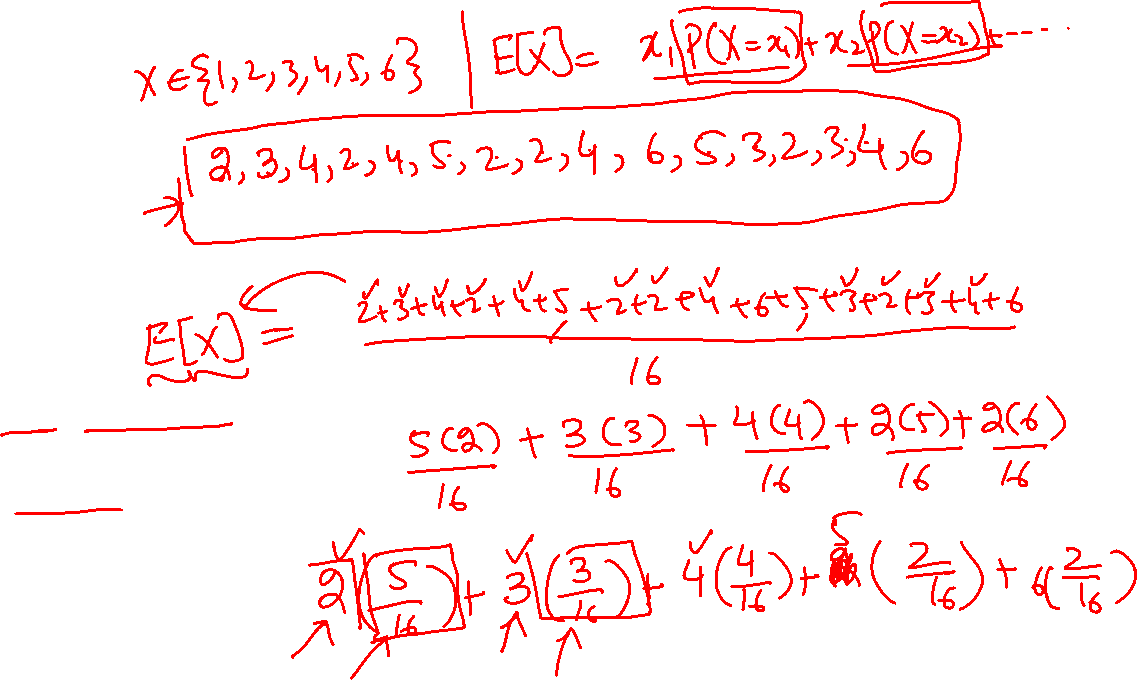 X ∈ {1,2,3,4,5,6} | E[X] = x₁ P(X=x₁) + x₂ P(X=x₂) + ----
2,3,4,2,4,5,2,2,4,6,5,3,2,3,4,6
E[X] = (2+3+4+2+4+5+2+2+4+6+5+3+2+3+4+6)/16
5(2)/16 + 3(3)/16 + 4(4)/16 + 2(5)/16 + 2(6)/16
2(5/16) + 3(3/16) + 4(4/16) + 5(2/16) + 6(2/16)